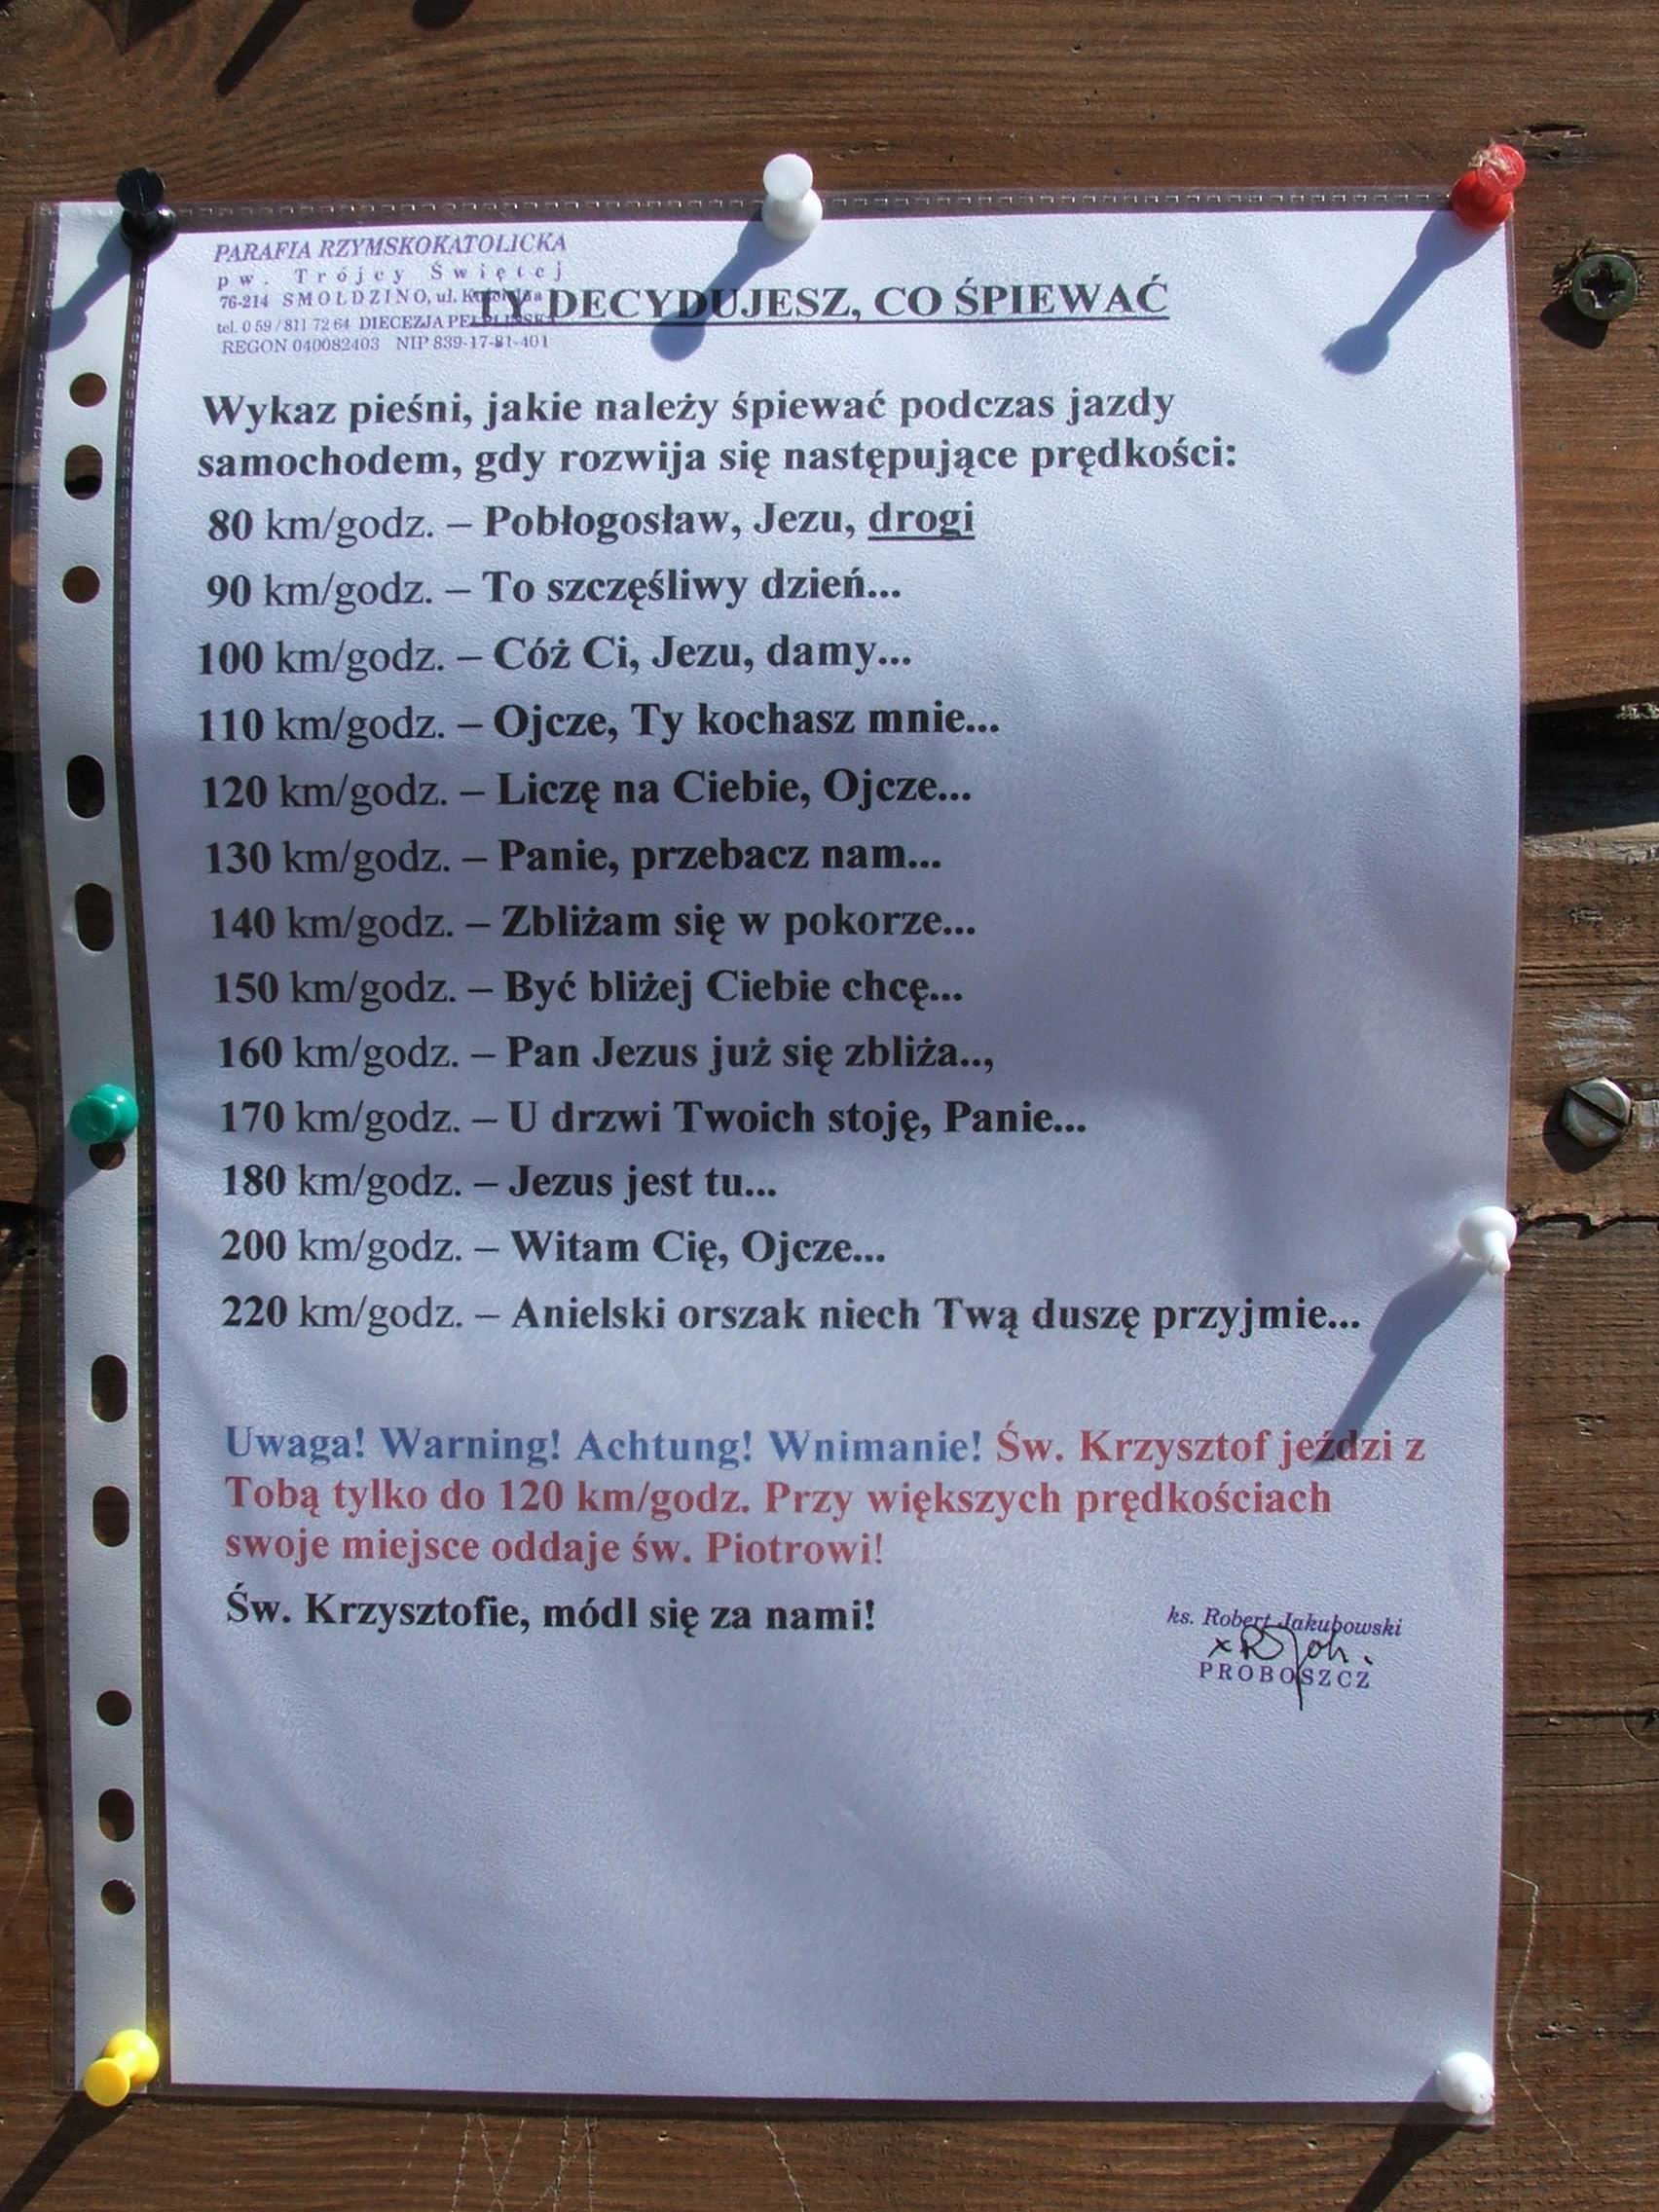 PARAFIA RZYMSKOKATOLICKA
pw. Trójcy Świętej
76-214 SMOŁDZINO, ul.
tel. 0 59 / 811 72 64 DIECEZJA PELPLIŃSKA
REGON 040082403 NIP 839-17-81-401
TY DECYDUJESZ, CO ŚPIEWAĆ
Wykaz pieśni, jakie należy śpiewać podczas jazdy
samochodem, gdy rozwija się następujące prędkości:
80 km/godz. – Pobłogosław, Jezu, drogi
90 km/godz. – To szczęśliwy dzień...
100 km/godz. – Cóż Ci, Jezu, damy...
110 km/godz. – Ojcze, Ty kochasz mnie...
120 km/godz. – Liczę na Ciebie, Ojcze...
130 km/godz. – Panie, przebacz nam...
140 km/godz. – Zbliżam się w pokorze...
150 km/godz. – Być bliżej Ciebie chcę...
160 km/godz. – Pan Jezus już się zbliża..,
170 km/godz. – U drzwi Twoich stoję, Panie...
180 km/godz. – Jezus jest tu...
200 km/godz. – Witam Cię, Ojcze...
220 km/godz. – Anielski orszak niech Twą duszę przyjmie...
Uwaga! Warning! Achtung! Wnimanie! Św. Krzysztof jeździ z
Tobą tylko do 120 km/godz. Przy większych prędkościach
swoje miejsce oddaje św. Piotrowi!
Św. Krzysztofie, módl się za nami!
ks. Robert Jakubowski
PROBOSZCZ